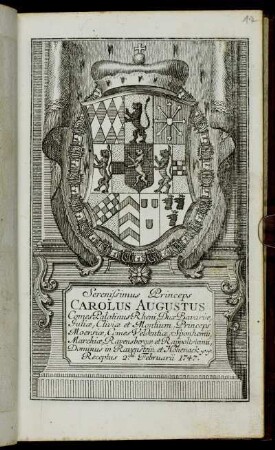 Serenissimus Princeps
CAROLUS AUGUSTUS
Comes Palatinus Rheni, Dux Bavariæ,
Juliæ, Cliviæ et Montium, Princeps
Moersiæ, Comes Veldentiæ, Sponhemii,
Marchiæ, Ravensbergæ et Rappoltsteinii,
Dominus in Ravenstein et Hohenack
Receptus 2da Februarii 1747.